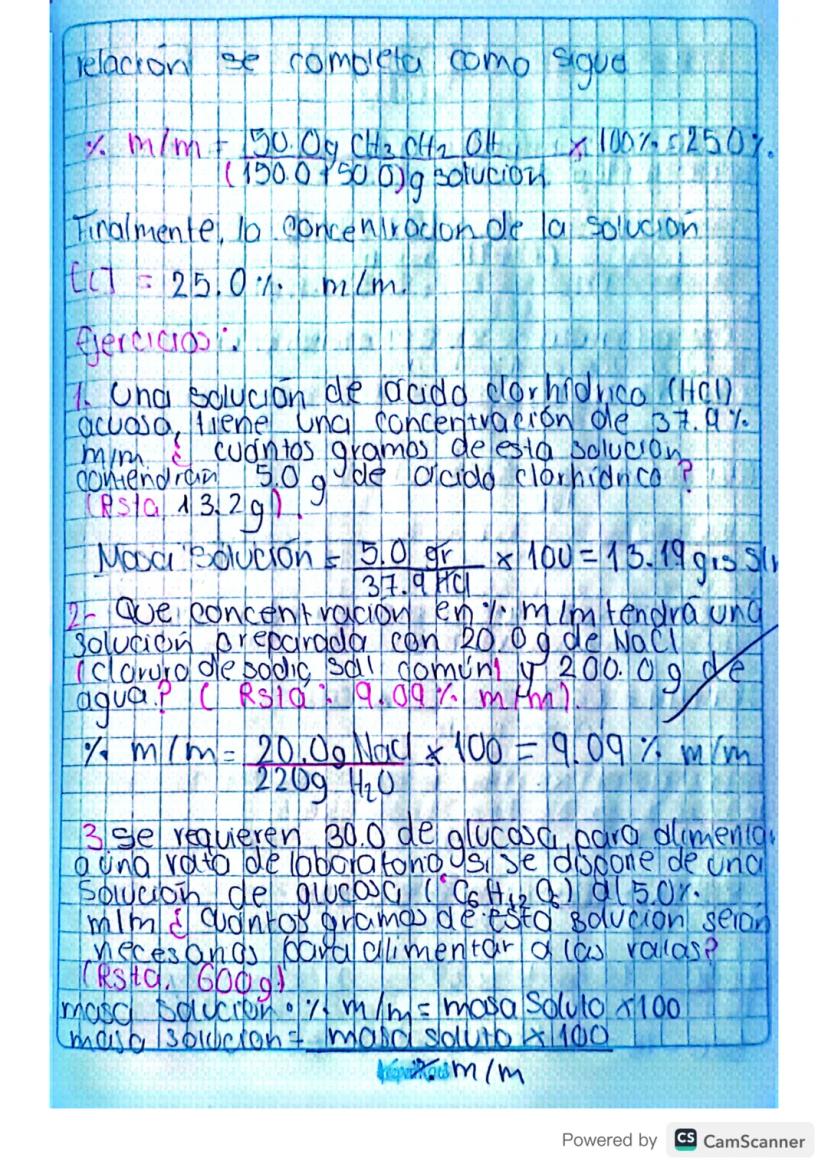 relación se completa como sigue
% m/m = 50.0g CH3 CH2 OH x 100% = 250%.
(150.0+50.0)g solución
Finalmente, la concentración de la solución
[C] = 25.0% m/m.
Ejercicios:
1. Una solución de ácido clorhídrico (HCl)
acuosa, tiene una concentración de 37.9%
m/m ¿ cuántos gramos de esta solución
contendrán 5.0 g de ácido clorhídrico?
(Rsta 13.2g).
Masa Solución = 5.0 gr x 100 = 13.19 grs Sln
37.9 HCl
2- Que concentración en % m/m tendrá una
solución preparada con 20.0g de NaCl
(cloruro de sodio, sal común) y 200.0g de
agua? ( Rsta: 9.09% m/m).
% m/m = 20.0g Nacl x 100 = 9.09 % m/m
220g H2O
3. se requieren 30.0 de glucosa para alimentar
a una rata de laboratorio. si se dispone de una
solución de glucosa (C6 H12 O6) al 5.0%
m/m ¿ Cuántos gramos de esta solución serán
necesarios para alimentar a las ratas?
(Rsta. 600g)
masa solución . % m/m = masa Soluto x100
masa solución = masa soluto x 100
m/m
Powered by CS CamScanner